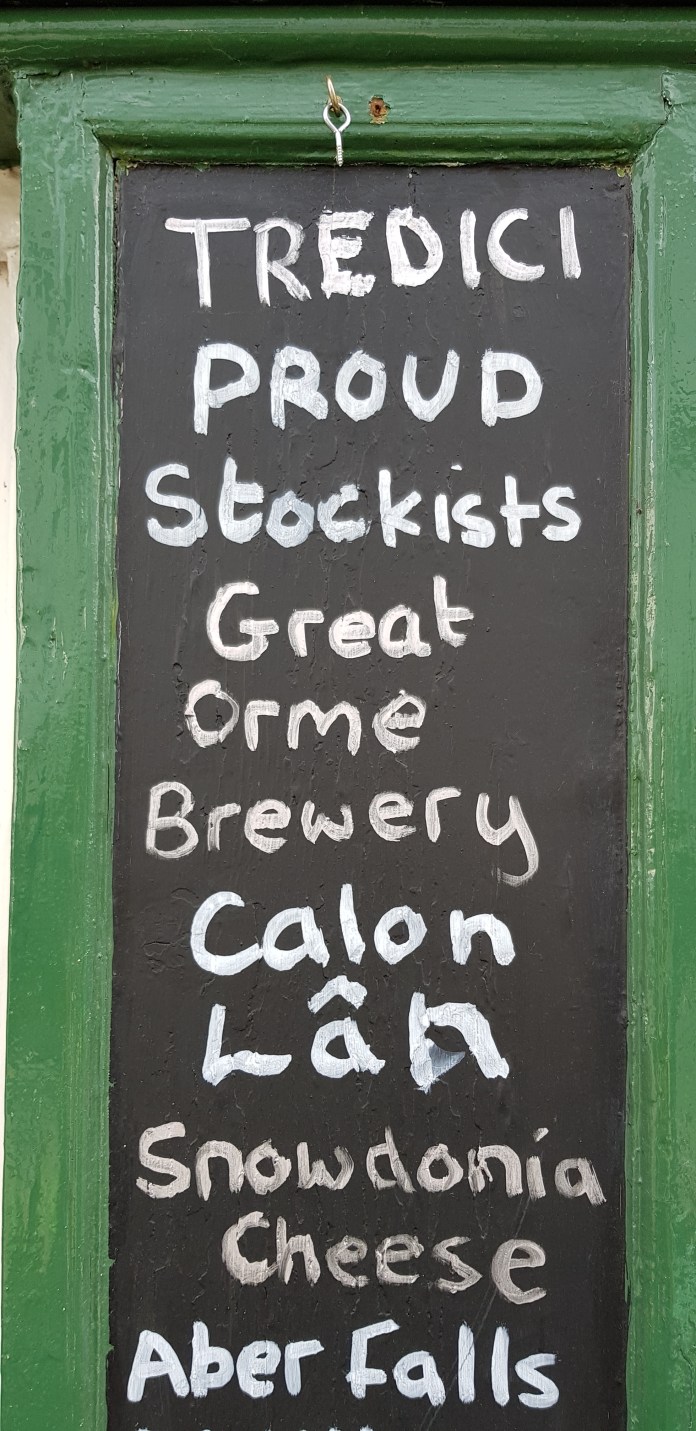 TREDICI
PROUD
Stockists
Great
Orme
Brewery
Calon
Lân
Snowdonia
Cheese
Aber Falls